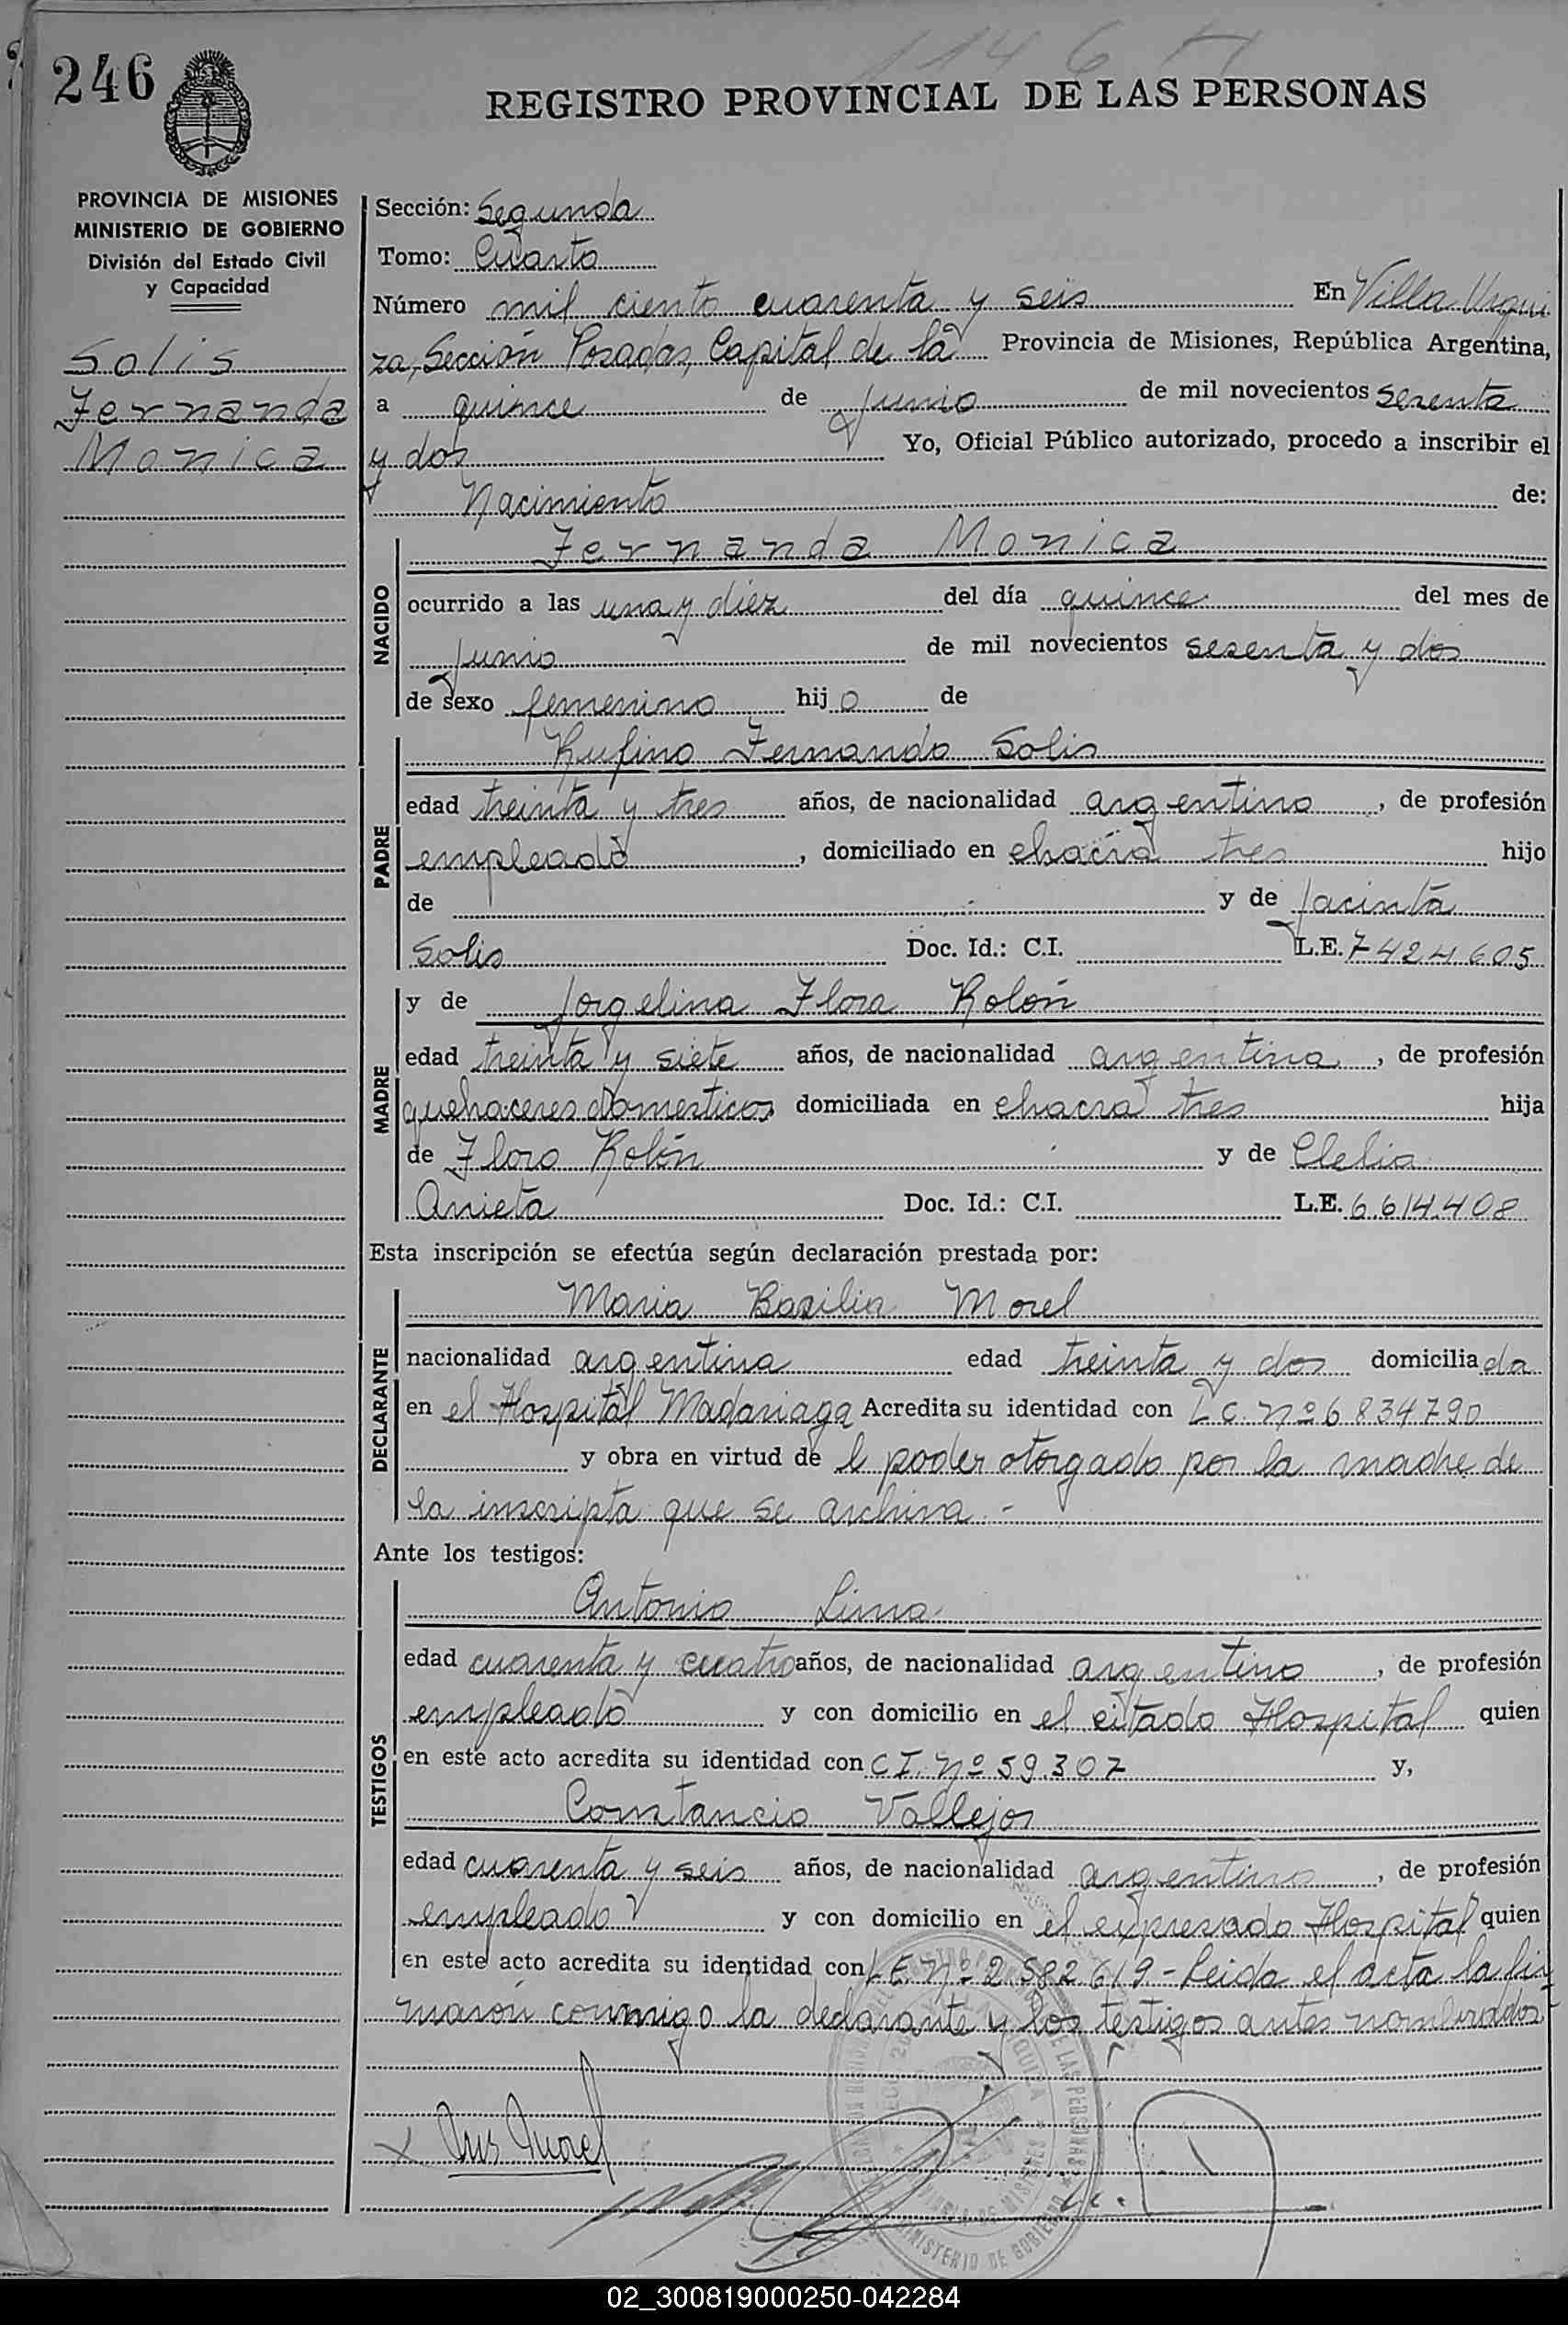 246
1146 H
REGISTRO PROVINCIAL DE LAS PERSONAS
PROVINCIA DE MISIONES
MINISTERIO DE GOBIERNO
División del Estado Civil
y Capacidad
Solis
Fernanda
Monica
Sección: Segunda
Tomo: Cuarto
Número mil ciento cuarenta y seis En Villa Urqui
za, Sección Posadas, Capital de la Provincia de Misiones, República Argentina,
a quince de junio de mil novecientos sesenta
y dos Yo, Oficial Público autorizado, procedo a inscribir el
Nacimiento de:
NACIDO
Fernanda Monica
ocurrido a las una y diez del día quince del mes de
junio de mil novecientos sesenta y dos
de sexo femenino hij a de
PADRE
Rufino Fernando Solis
edad treinta y tres años, de nacionalidad argentino, de profesión
empleado, domiciliado en chacra tres hijo
de y de Jacinta
Solis Doc. Id.: C.I. L.E. 7424605
MADRE
y de Jorgelina Flora Rolón
edad treinta y siete años, de nacionalidad argentina, de profesión
quehaceres domesticos domiciliada en chacra tres hija
de Floro Rolón y de Clelia
Anieta Doc. Id.: C.I. L.E. 6.614.408
Esta inscripción se efectúa según declaración prestada por:
DECLARANTE
Maria Basilia Morel
nacionalidad argentina edad treinta y dos domicilia da
en el Hospital Madariaga Acredita su identidad con L C. Nº 6834790
y obra en virtud de l poder otorgado por la madre de
la inscripta que se archiva. -
Ante los testigos:
TESTIGOS
Antonio Lima
edad cuarenta y cuatro años, de nacionalidad argentino, de profesión
empleado y con domicilio en el citado Hospital quien
en este acto acredita su identidad con C I. Nº 59.307 y,
Constancio Vallejos
edad cuarenta y seis años, de nacionalidad argentino, de profesión
empleado y con domicilio en el expresado Hospital quien
en este acto acredita su identidad con L E. Nº 2 582 619 - Leida el acta la fir
maron conmigo la declarante y los testigos antes nombrados
MINISTERIO DE GOBIERNO
02_300819000250-042284